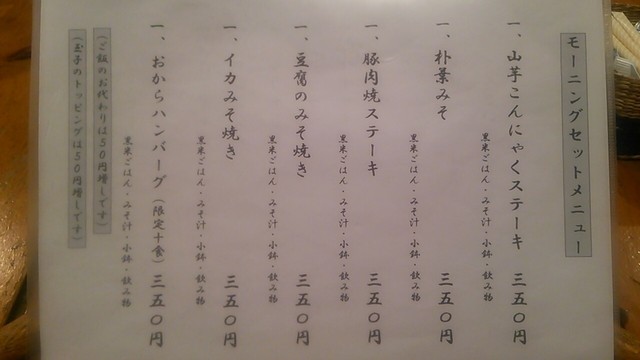 モーニングセットメニュー
一、山芋こんにゃくステーキ 三五〇円
黒米ごはん・みそ汁・小鉢・飲み物
一、朴葉みそ 三五〇円
黒米ごはん・みそ汁・小鉢・飲み物
一、豚肉焼ステーキ 三五〇円
黒米ごはん・みそ汁・小鉢・飲み物
一、豆腐のみそ焼き 三五〇円
黒米ごはん・みそ汁・小鉢・飲み物
一、イカみそ焼き 三五〇円
黒米ごはん・みそ汁・小鉢・飲み物
一、おからハンバーグ(限定十食)三五〇円
黒米ごはん・みそ汁・小鉢・飲み物
(ご飯のお代わりは50円増しです)
(玉子のトッピングは50円増しです)